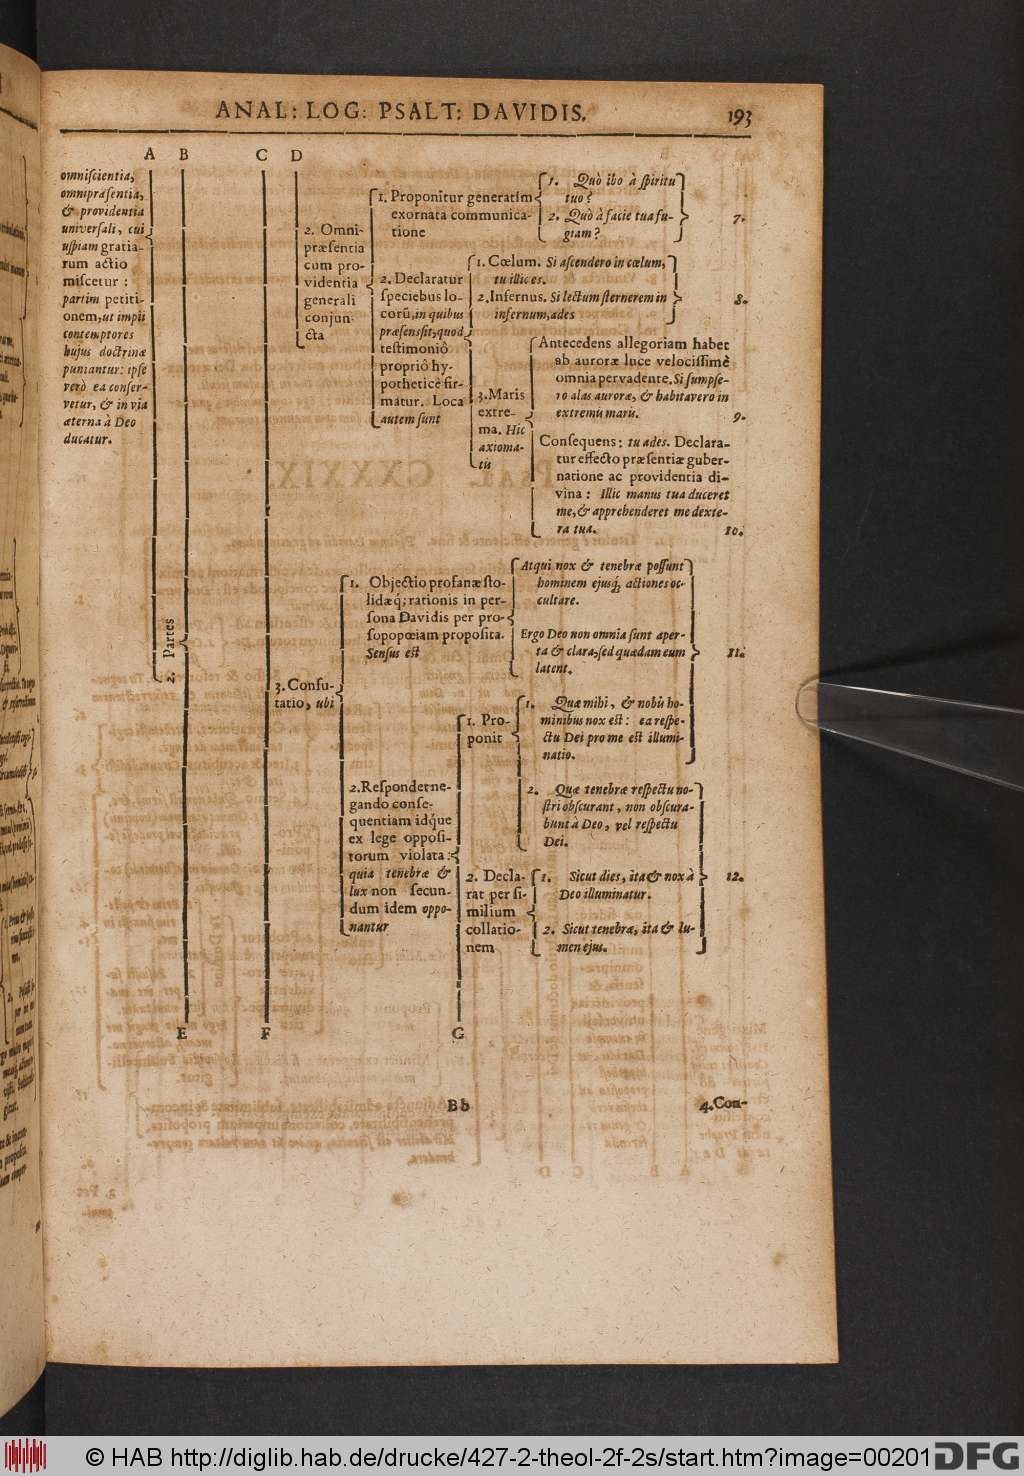 ANAL: LOG: PSALT: DAVIDIS.
193
A B C D
omniscientia,
omnipræsentia,
& providentia
universali, cui
uspiam gratia-
rum actio
miscetur :
partim petiti-
onem, ut impii
contemptores
hujus doctrinæ
puniantur: ipse
verò ea conser-
vetur, & in via
æterna à Deo
ducatur.
2. Partes
2. Omni-
præsentia
cum pro-
videntia
generali
conjun
cta
1. Proponitur generatim
exornata communica-
tione
1. Quò ibo à spiritu
tuo?
2. Quò à facie tua fu-
giam?
7.
2. Declaratur
speciebus lo-
corũ, in quibus
præsens sit, quod
testimoniô
propriô hy-
potheticè fir-
matur. Loca
autem sunt
1. Cœlum. Si ascendero in cœlum,
tu illic es.
2. Infernus. Si lectum sternerem in
infernum, ades
8.
3. Maris
extre-
ma. Hic
axioma-
tis
Antecedens allegoriam habet
ab auroræ luce velocissimè
omnia pervadente. Si sumpse-
ro alas auroræ, & habitavero in
extremũ maris.
9.
Consequens: tu ades. Declara-
tur effecto præsentiæ guber-
natione ac providentia di-
vina : Illic manus tua duceret
me, & apprehenderet me dexte-
ra tua.
10.
3. Confu-
tatio, ubi
1. Objectio profanæ sto-
lidæq́; rationis in per-
sona Davidis per pro-
sopopœiam proposita.
Sensus est
Atqui nox & tenebræ possunt
hominem ejusq́; actiones oc-
cultare.
Ergo Deo non omnia sunt aper-
ta & clara, sed quædam eum
latent.
11.
2. Responder ne-
gando conse-
quentiam idq́ue
ex lege opposi-
torum violata:
quia tenebræ &
lux non secun-
dum idem oppo-
nantur
1. Pro-
ponit
1. Quæ mihi, & nobis ho-
minibus nox est : ea respe-
ctu Dei pro me est illumi-
natio.
2. Quæ tenebræ respectu no-
stri obscurant, non obscura-
bunt à Deo, vel respectu
Dei.
2. Decla-
rat per si-
milium
collatio-
nem
1. Sicut dies, ita & nox à
Deo illuminatur.
2. Sicut tenebræ, ita & lu-
men ejus.
12.
E F G
Bb
4. Con-
© HAB http://diglib.hab.de/drucke/427-2-theol-2f-2s/start.htm?image=00201
DFG